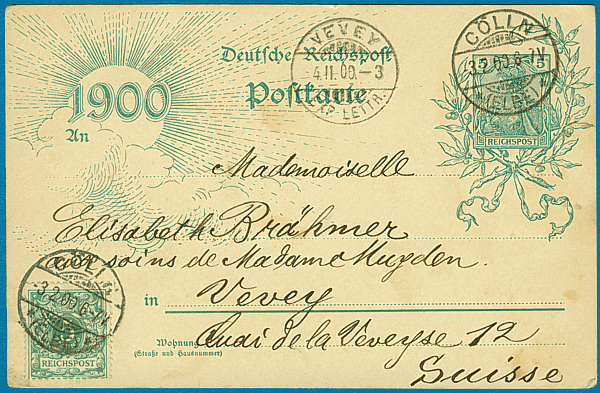 Deutsche Reichspost
Postkarte
1900
An
VEVEY
4.II.00.–3
LETTR.
CÖLLN
3.2.00.6-7N.
(ELBE)
5 5
REICHSPOST
Mademoiselle
Elisabeth Brähmer
aux soins de Madame Mugden.
in Vevey
Wohnung Quai de la Veveyse 12
(Straße und Hausnummer)
Suisse
CÖLLN
3.2.00.6-7N.
(ELBE)
REICHSPOST